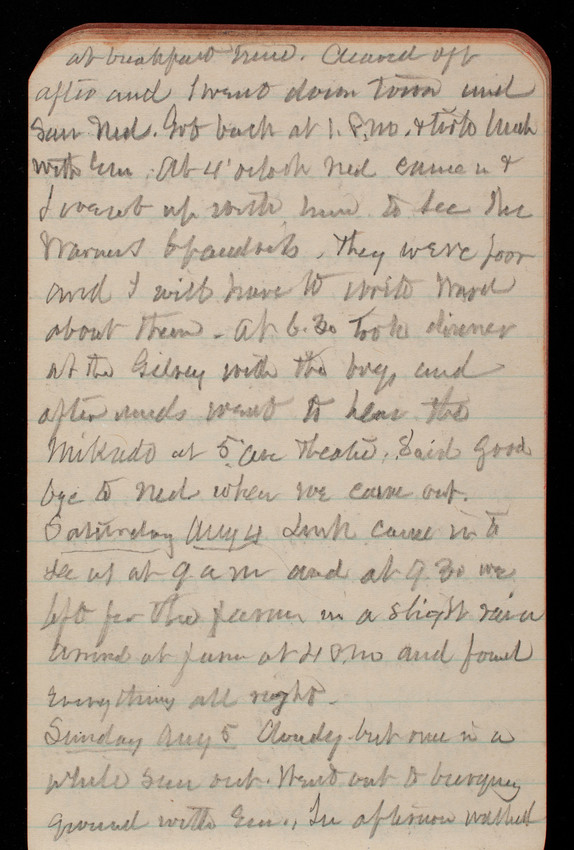 at breakfast time. Cleared off
after and I went down town and
saw Ned. Got back at 1. P.M. & took lunch
with Em. At 4 o'clock Ned came in &
I went up with him to see the
Warners . They were poor
and I will have to write Ward
about them. At 6.30 Took dinner
at the Gilsey with the boys and
after wards went to hear the
Mikado at 5" Ave Theatre. Said good
bye to Ned when we came out.
Saturday Aug 4 came in to
see us at 9 a m and at 9 30 we
left for the farm in a slight rain
arrived at farm at 4 P.M and found
everything all right.
Sunday Aug 5 Cloudy but once in a
while sun out. Went out to burying
ground with Em., In afternoon walked